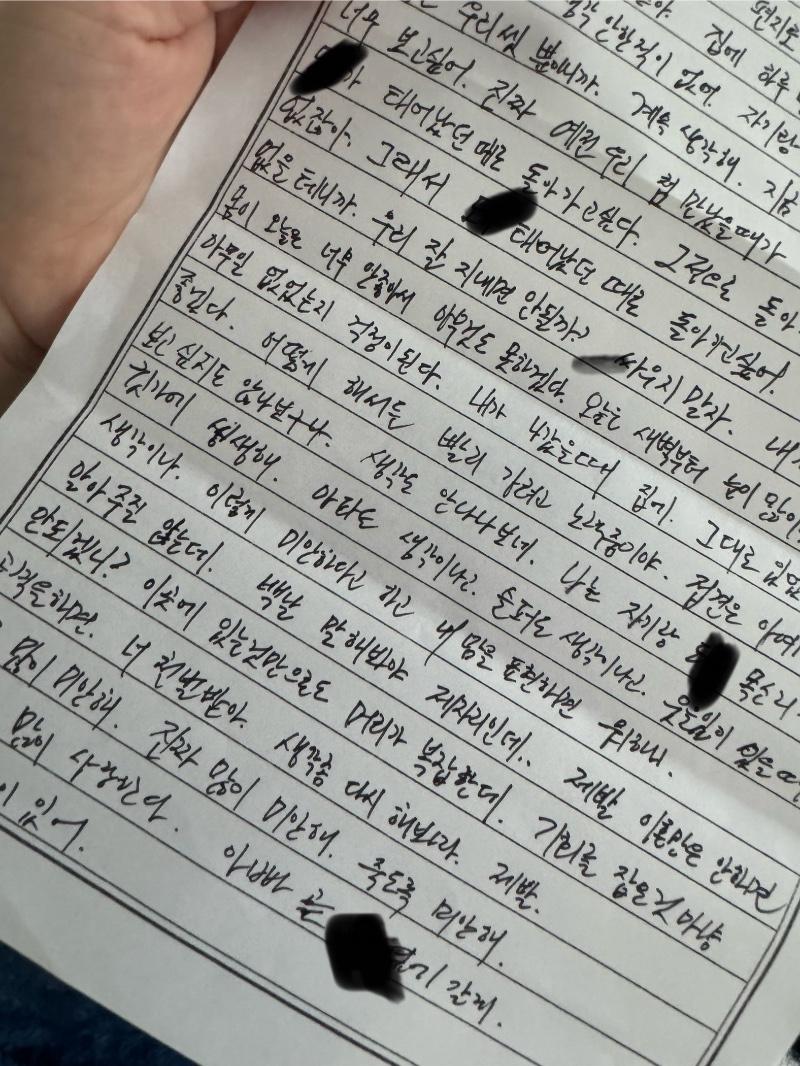 편지로
생각 안한적이 없어. 집에 하루
우리셋 뿐이니까. 자기랑
너무 보고싶어. 진짜 예전 우리 첨 만났을때가 계속 생각해. 지금
가 태어났던 때로 돌아가고싶다. 그걱으로 돌아
없잖아. 그래서 태어났던 때로 돌아가고싶어.
없을테니까. 우리 잘 지내면 안될까? 싸우지 말자. 내가
몸이 오늘은 너무 안좋아서 아무것도 못하겠다. 오늘은 새벽부터 눈이 많이
아무일 없었는지 걱정이된다. 내가 나갔을때 집에. 그대로 있었으면
좋겠다. 어떻게 해서든 빨리 가려고 노력중이야. 접견은 아예
보고싶지도 않나보구나. 생각도 안나나보네. 나는 자기랑 목소리가
귓가에 쌩쌩해. 아파도 생각이나고. 슬퍼도 생각이나고. 웃을일이 있을때
생각이나. 이렇게 미안하다고 하고 내 맘을 표현하면 뭐하니.
받아주질 않는데. 백날 말해봐야 제자리인데.. 제발 이혼만은 안하면
안되겠니? 이곳에 있는것만으로도 머리가 복잡한데. 기회를 잡은것 마냥
공격을하면. 너 천벌받아. 생각좀 다시 해봐라. 제발.
많이 미안해. 진짜 많이 미안해. 죽도록 미안해.
많이 사랑한다. 아빠 곧 갈게.
있어.